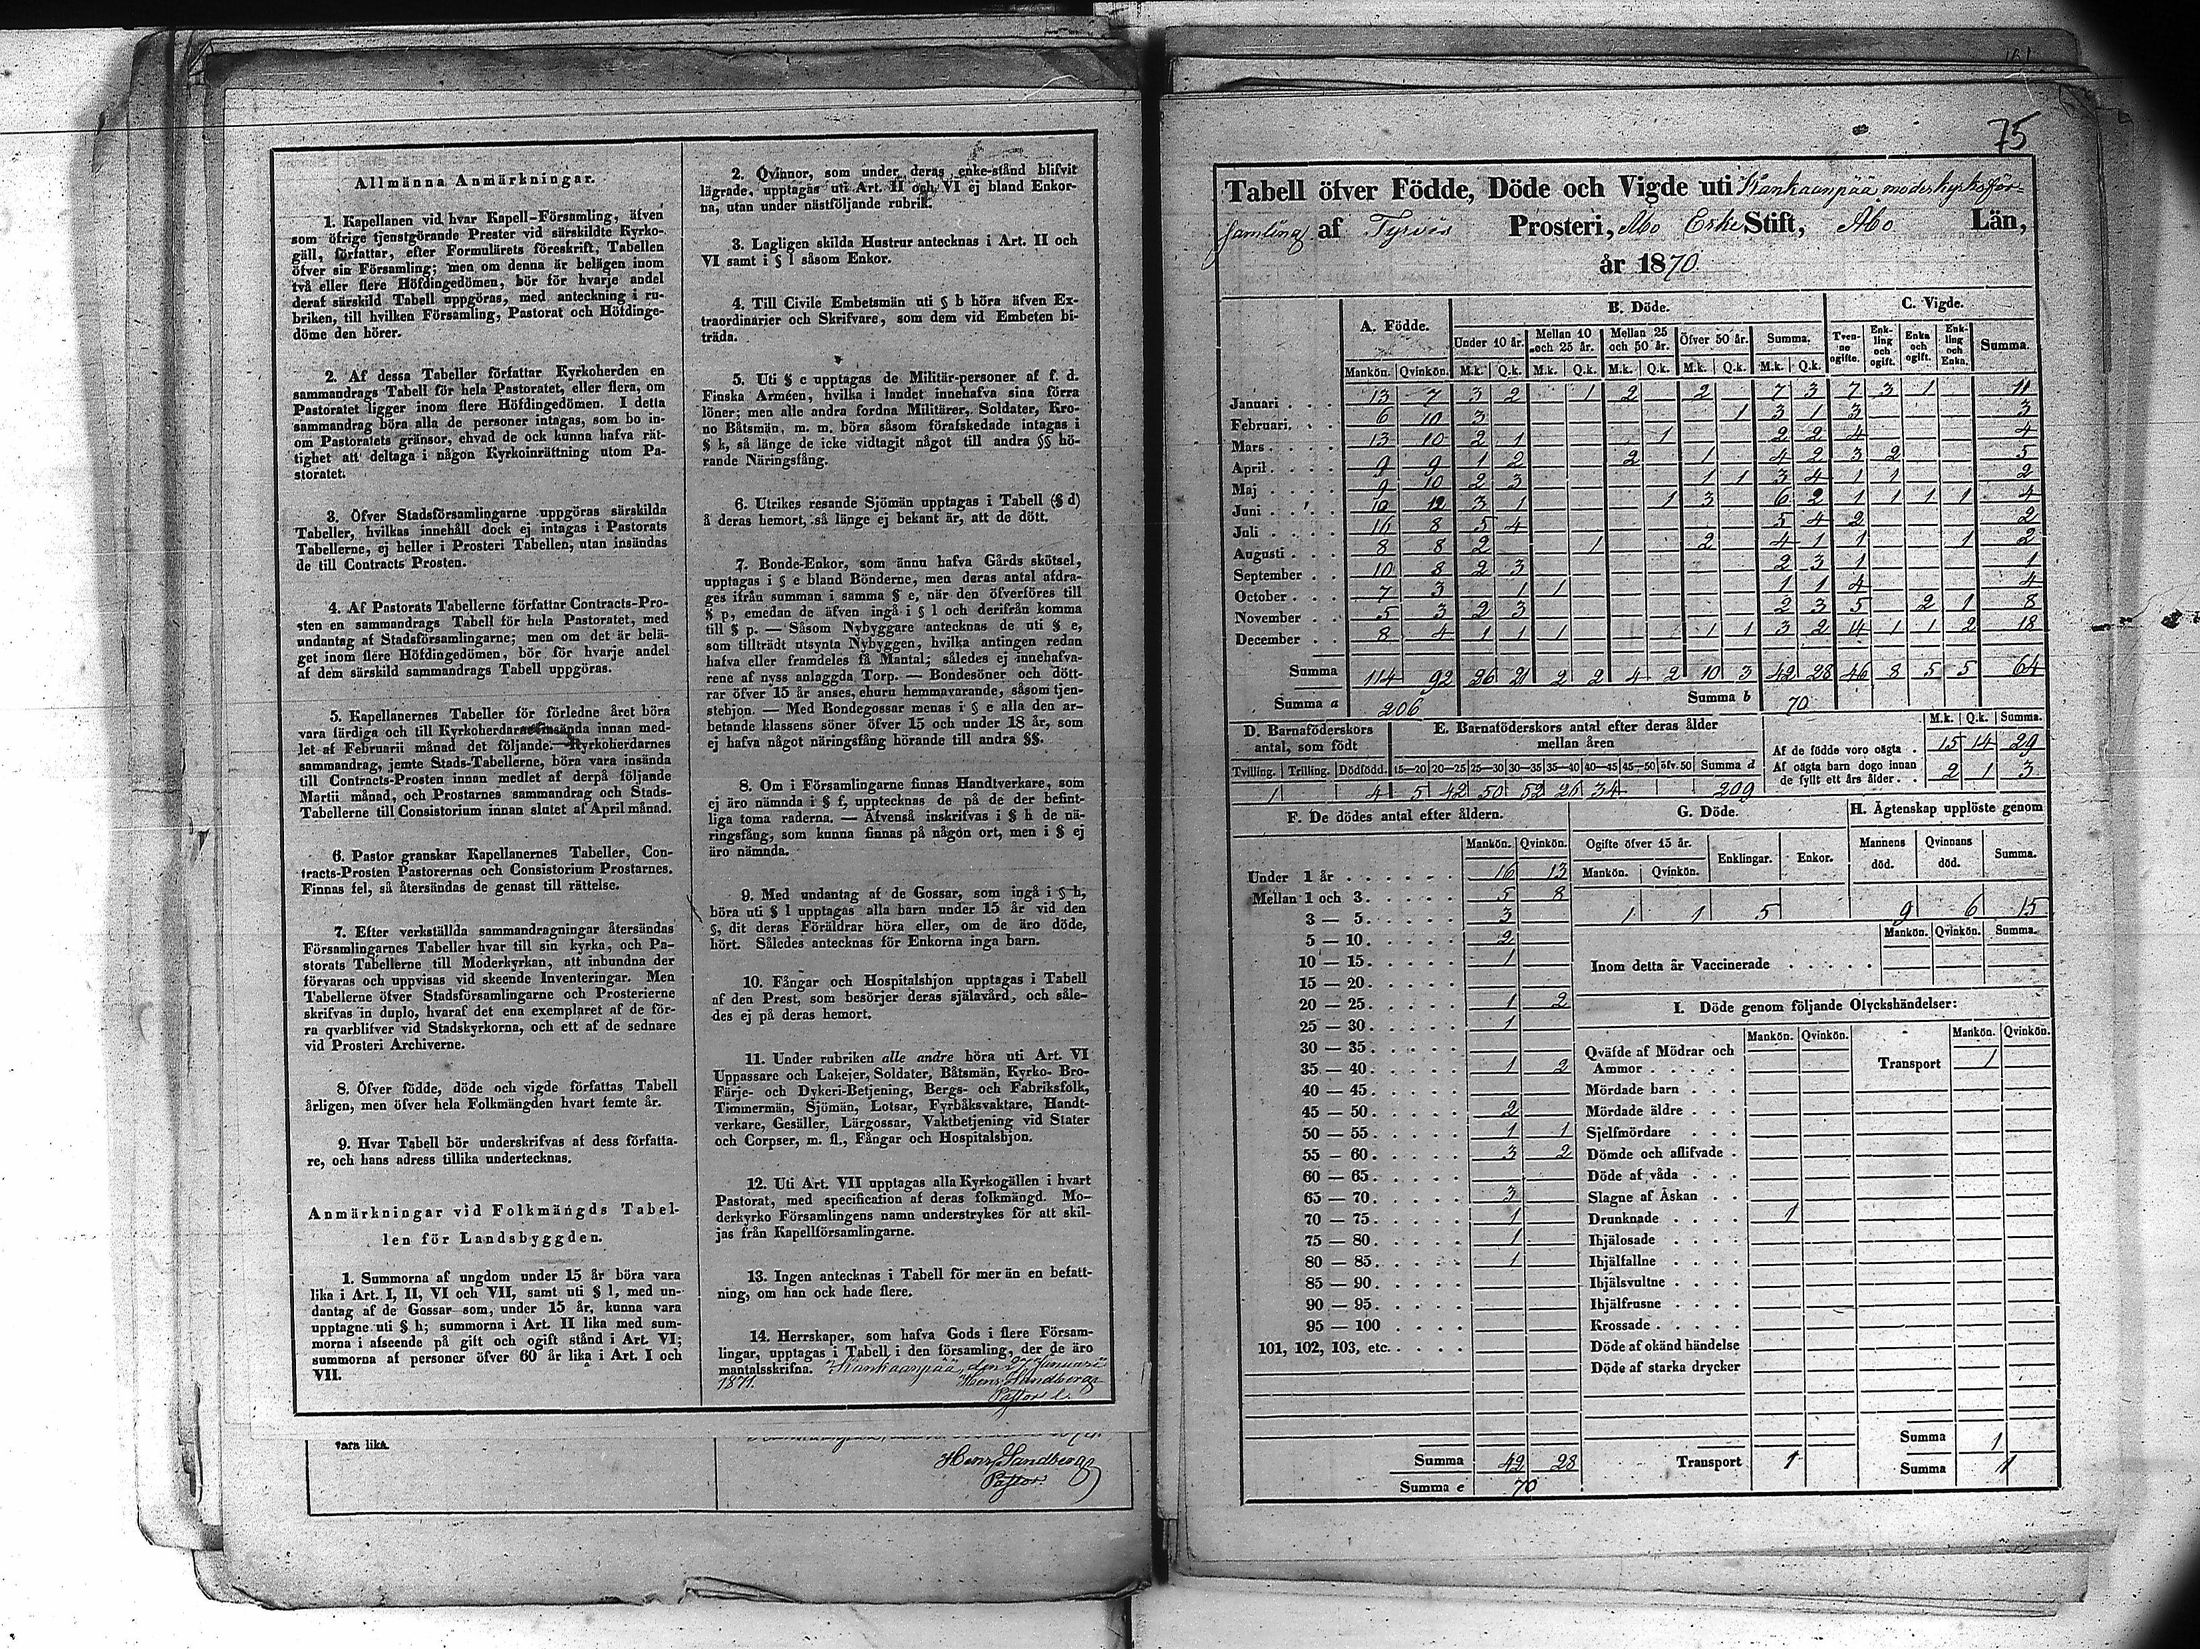 Allmänna Anmärkningar.
1. Kapellanen vid hvar Kapell-Församling, äfven
som öfrige tjenstgörande Prester vid särskildte Kyrko-
gäll, författar, efter Formulärets föreskrift, Tabellen
öfver sin Församling; men om denna är belägen inom
två eller flere Höfdingedömen, bör för hvarje andel
deraf särskild Tabell uppgöras, med anteckning i ru-
briken, till hvilken Församling, Pastorat och Höfdinge-
döme den hörer.
2. Af dessa Tabeller författar Kyrkoherden en
sammandrags Tabell för hela Pastoratet, eller flera, om
Pastoratet ligger inom flere Höfdingedömen. I detta
sammandrag böra alla de personer intagas, som bo in-
om Pastoratets gränsor, ehvad de ock kunna hafva rät-
tighet att deltaga i någon Kyrkoinrättning utom Pa-
storatet.
3. Öfver Stadsförsamlingarne uppgöras särskilda
Tabeller, hvilkas innehåll dock ej intagas i Pastorats
Tabellerne, ej heller i Prosteri Tabellen, utan insändas
de till Contracts Prosten.
4. Af Pastorats Tabellerne författar Contracts-Pro-
sten en sammandrags Tabell för hela Pastoratet, med
undantag af Stadsförsamlingarne; men om det är belä-
get inom flere Höfdingedömen, bör för hvarje andel
af dem särskild sammandrags Tabell uppgöras.
5. Kapellanernes Tabeller för förledne året böra
vara färdiga och till Kyrkoherdarne insända innan med-
let af Februarii månad det följande. Kyrkoherdarnes
sammandrag, jemte Stads-Tabellerne, böra vara insända
till Contracts-Prosten innan medlet af derpå följande
Martii månad, och Prostarnes sammandrag och Stads-
Tabellerne till Consistorium innan slutet af April månad.
6. Pastor granskar Kapellanernes Tabeller, Con-
tracts-Prosten Pastorernas och Consistorium Prostarnes.
Finnas fel, så återsändas de genast till rättelse.
7. Efter verkställda sammandragningar återsändas
Församlingarnes Tabeller hvar till sin kyrka, och Pa-
storats Tabellerne till Moderkyrkan, att inbundna der
förvaras och uppvisas vid skeende Inventeringar. Men
Tabellerne öfver Stadsförsamlingarne och Prosterierne
skrifvas in duplo, hvaraf det ena exemplaret af de för-
ra qvarblifver vid Stadskyrkorna, och ett af de sednare
vid Prosteri Archiverne.
8. Öfver födde, döde och vigde författas Tabell
årligen, men öfver hela Folkmängden hvart femte år.
9. Hvar Tabell bör underskrifvas af dess författa-
re, och hans adress tillika undertecknas.
Anmärkningar vid Folkmängds Tabel-
len för Landsbyggden.
1. Summorna af ungdom under 15 år böra vara
lika i Art. I, II, VI och VII, samt uti § l, med un-
dantag af de Gossar som, under 15 år, kunna vara
upptagne uti § h; summorna i Art. II lika med sum-
morna i afseende på gift och ogift stånd i Art. VI;
summorna af personer öfver 60 år lika i Art. I och
VII.
2. Qvinnor, som under deras enke-stånd blifvit
lägrade, upptagas uti Art. II och VI ej bland Enkor-
na, utan under nästföljande rubrik.
3. Lagligen skilda Hustrur antecknas i Art. II och
VI samt i § l såsom Enkor.
4. Till Civile Embetsmän uti § b höra äfven Ex-
traordinarier och Skrifvare, som dem vid Embeten bi-
träda.
5. Uti § c upptagas de Militär-personer af f. d.
Finska Arméen, hvilka i landet innehafva sina förra
löner; men alla andra fordna Militärer, Soldater, Kro-
no Båtsmän, m. m. böra såsom förafskedade intagas i
§ k, så länge de icke vidtagit något till andra §§ hö-
rande Näringsfång.
6. Utrikes resande Sjömän upptagas i Tabell (§ d)
å deras hemort, så länge ej bekant är, att de dött.
7. Bonde-Enkor, som ännu hafva Gårds skötsel,
upptagas i § e bland Bönderne, men deras antal afdra-
ges ifrån summan i samma § e, när den öfverföres till
§ p, emedan de äfven ingå i § l och derifrån komma
till § p. — Såsom Nybyggare antecknas de uti § e,
som tillträdt utsynta Nybyggen, hvilka antingen redan
hafva eller framdeles få Mantal; således ej innehafva-
rene af nyss anlaggda Torp. — Bondesöner och dött-
rar öfver 15 år anses, ehuru hemmavarande, såsom tjen-
stehjon. — Med Bondegossar menas i § e alla den ar-
betande klassens söner öfver 15 och under 18 år, som
ej hafva något näringsfång hörande till andra §§.
8. Om i Församlingarne finnas Handtverkare, som
ej äro nämnda i § f, upptecknas de på de der befint-
liga toma raderna. — Äfvenså inskrifvas i § h de nä-
ringsfång, som kunna finnas på någon ort, men i § ej
äro nämnda.
9. Med undantag af de Gossar, som ingå i § h,
böra uti § l upptagas alla barn under 15 år vid den
§, dit deras Föräldrar höra eller, om de äro döde,
hört. Således antecknas för Enkorna inga barn.
10. Fångar och Hospitalshjon upptagas i Tabell
af den Prest, som besörjer deras själavård, och såle-
des ej på deras hemort.
11. Under rubriken alle andre höra uti Art. VI
Uppassare och Lakejer, Soldater, Båtsmän, Kyrko- Bro-
Färje- och Dykeri-Betjening, Bergs- och Fabriksfolk,
Timmermän, Sjömän, Lotsar, Fyrbåksvaktare, Handt-
verkare, Gesäller, Lärgossar, Vaktbetjening vid Stater
och Corpser, m. fl., Fångar och Hospitalshjon.
12. Uti Art. VII upptagas alla Kyrkogällen i hvart
Pastorat, med specification af deras folkmängd. Mo-
derkyrko Församlingens namn understrykes för att skil-
jas från Kapellförsamlingarne.
13. Ingen antecknas i Tabell för mer än en befatt-
ning, om han ock hade flere.
14. Herrskaper, som hafva Gods i flere Försam-
lingar, upptagas i Tabell i den församling, der de äro
mantalsskrifna. Kankaanpää, den 27 Januarii
1871. Henr. Sandberg
Pastor l.
vara lika.
Henr. Sandberg
Pastor
75
Tabell öfver Födde, Döde och Vigde uti Kankaanpää moderkyrkoför-
samling af Tyrvis Prosteri, Åbo Erke Stift, Åbo Län,
år 1870.
A. Födde. B. Döde. C. Vigde.
Under 10 år. Mellan 10 och 25 år. Mellan 25 och 50 år. Öfver 50 år. Summa. Tvenne ogifte. Enkling och ogift. Enka och ogift. Enkling och Enka. Summa.
Mankön. Qvinkön. M.k. Q.k. M.k. Q.k. M.k. Q.k. M.k. Q.k. M.k. Q.k.
Januari . . . 13 7 3 2 1 2 2 7 3 7 3 1 11
Februari. . . 6 10 3 1 3 1 3 3
Mars . . . . 13 10 2 1 1 2 2 4 4
April . . . . 9 9 1 2 2 1 4 2 3 2 5
Maj . . . . 9 10 2 3 1 1 3 4 1 1 2
Juni . . . . 10 12 3 1 1 3 6 2 1 1 1 1 4
Juli . . . . 16 8 5 4 5 4 2 2
Augusti . . . 8 8 2 1 2 4 1 1 1 2
September . . 10 8 2 3 2 3 1 1
October . . . 7 3 1 1 1 1 4 4
November . . 5 3 2 3 2 3 5 2 1 8
December . . 8 4 1 1 1 1 1 3 2 14 1 1 2 18
Summa 114 92 26 21 2 2 4 2 10 3 42 28 46 8 5 5 64
Summa a 206 Summa b 70
D. Barnaföderskors antal, som födt
Tvilling. Trilling. Dödfödd.
1 4
E. Barnaföderskors antal efter deras ålder mellan åren
15—20 20—25 25—30 30—35 35—40 40—45 45—50 öfv. 50 Summa d
5 42 50 52 26 34 209
M.k. Q.k. Summa.
Af de födde voro oägta . 15 14 29
Af oägta barn dogo innan
de fyllt ett års ålder . . 2 1 3
F. De dödes antal efter åldern.
Mankön. Qvinkön.
Under 1 år . . . . . . 16 13
Mellan 1 och 3 . . . . . 5 8
3 — 5 . . . . . 3
5 — 10 . . . . . 2
10 — 15 . . . . . 1
15 — 20 . . . . .
20 — 25 . . . . . 1 2
25 — 30 . . . . . 1
30 — 35 . . . . .
35 — 40 . . . . . 1 2
40 — 45 . . . . .
45 — 50 . . . . . 2
50 — 55 . . . . . 1 1
55 — 60 . . . . . 3 2
60 — 65 . . . . .
65 — 70 . . . . . 3
70 — 75 . . . . . 1
75 — 80 . . . . . 1
80 — 85 . . . . . 1
85 — 90 . . . . .
90 — 95 . . . . .
95 — 100 . . . .
101, 102, 103, etc. . . . .
Summa 42 28
Summa e 70
G. Döde.
Ogifte öfver 15 år. Enklingar. Enkor.
Mankön. Qvinkön.
1 1 5
H. Ägtenskap upplöste genom
Mannens död. Qvinnans död. Summa.
9 6 15
Mankön. Qvinkön. Summa.
Inom detta år Vaccinerade . . . . .
I. Döde genom följande Olyckshändelser:
Mankön. Qvinkön. Mankön. Qvinkön.
Qväfde af Mödrar och
Ammor . . . . . Transport 1
Mördade barn . . .
Mördade äldre . . .
Sjelfmördare . . .
Dömde och aflifvade .
Döde af våda . . .
Slagne af Åskan . .
Drunknade . . . . 1
Ihjälosade . . . .
Ihjälfallne . . . .
Ihjälsvultne . . . .
Ihjälfrusne . . . .
Krossade . . . . .
Döde af okänd händelse
Döde af starka drycker
Summa 1
Transport 1 Summa 1